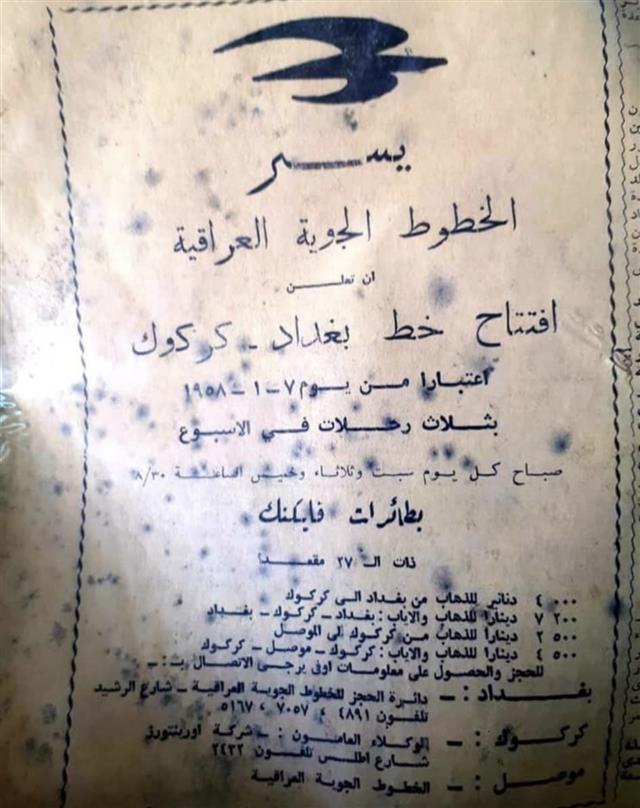 يسر
الخطوط الجوية العراقية
ان تعلن
افتتاح خط بغداد - كركوك
اعتبارا من يوم ٧-١-١٩٥٨
بثلاث رحلات في الاسبوع
صباح كل يوم سبت وثلاثاء وخميس الساعة ٨/٣٠
بطائرات فايكنك
ذات الـ ٢٧ مقعدا
٤ ٠٠٠ دنانير للذهاب من بغداد الى كركوك
٧ ٢٠٠ دينارا للذهاب والاياب : بغداد - كركوك - بغداد
٢ ٥٠٠ دينارا للذهاب من كركوك الى الموصل
٤ ٥٠٠ دينارا للذهاب والاياب : كركوك - موصل - كركوك
للحجز والحصول على معلومات اوفى يرجى الاتصال بـ : -
بغداد : - دائرة الحجز للخطوط الجوية العراقية - شارع الرشيد
تلفون ٤٨٩١ ، ٧٠٥٧ ، ٥١٦٧
كركوك : - الوكلاء العامون : - شركة اورينتورز
شارع اطلس تلفون ٢٤٣٢
موصل : - الخطوط الجوية العراقية